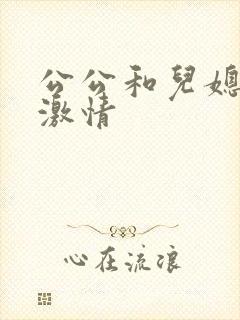 公公和兒媳
激情
心在流浪